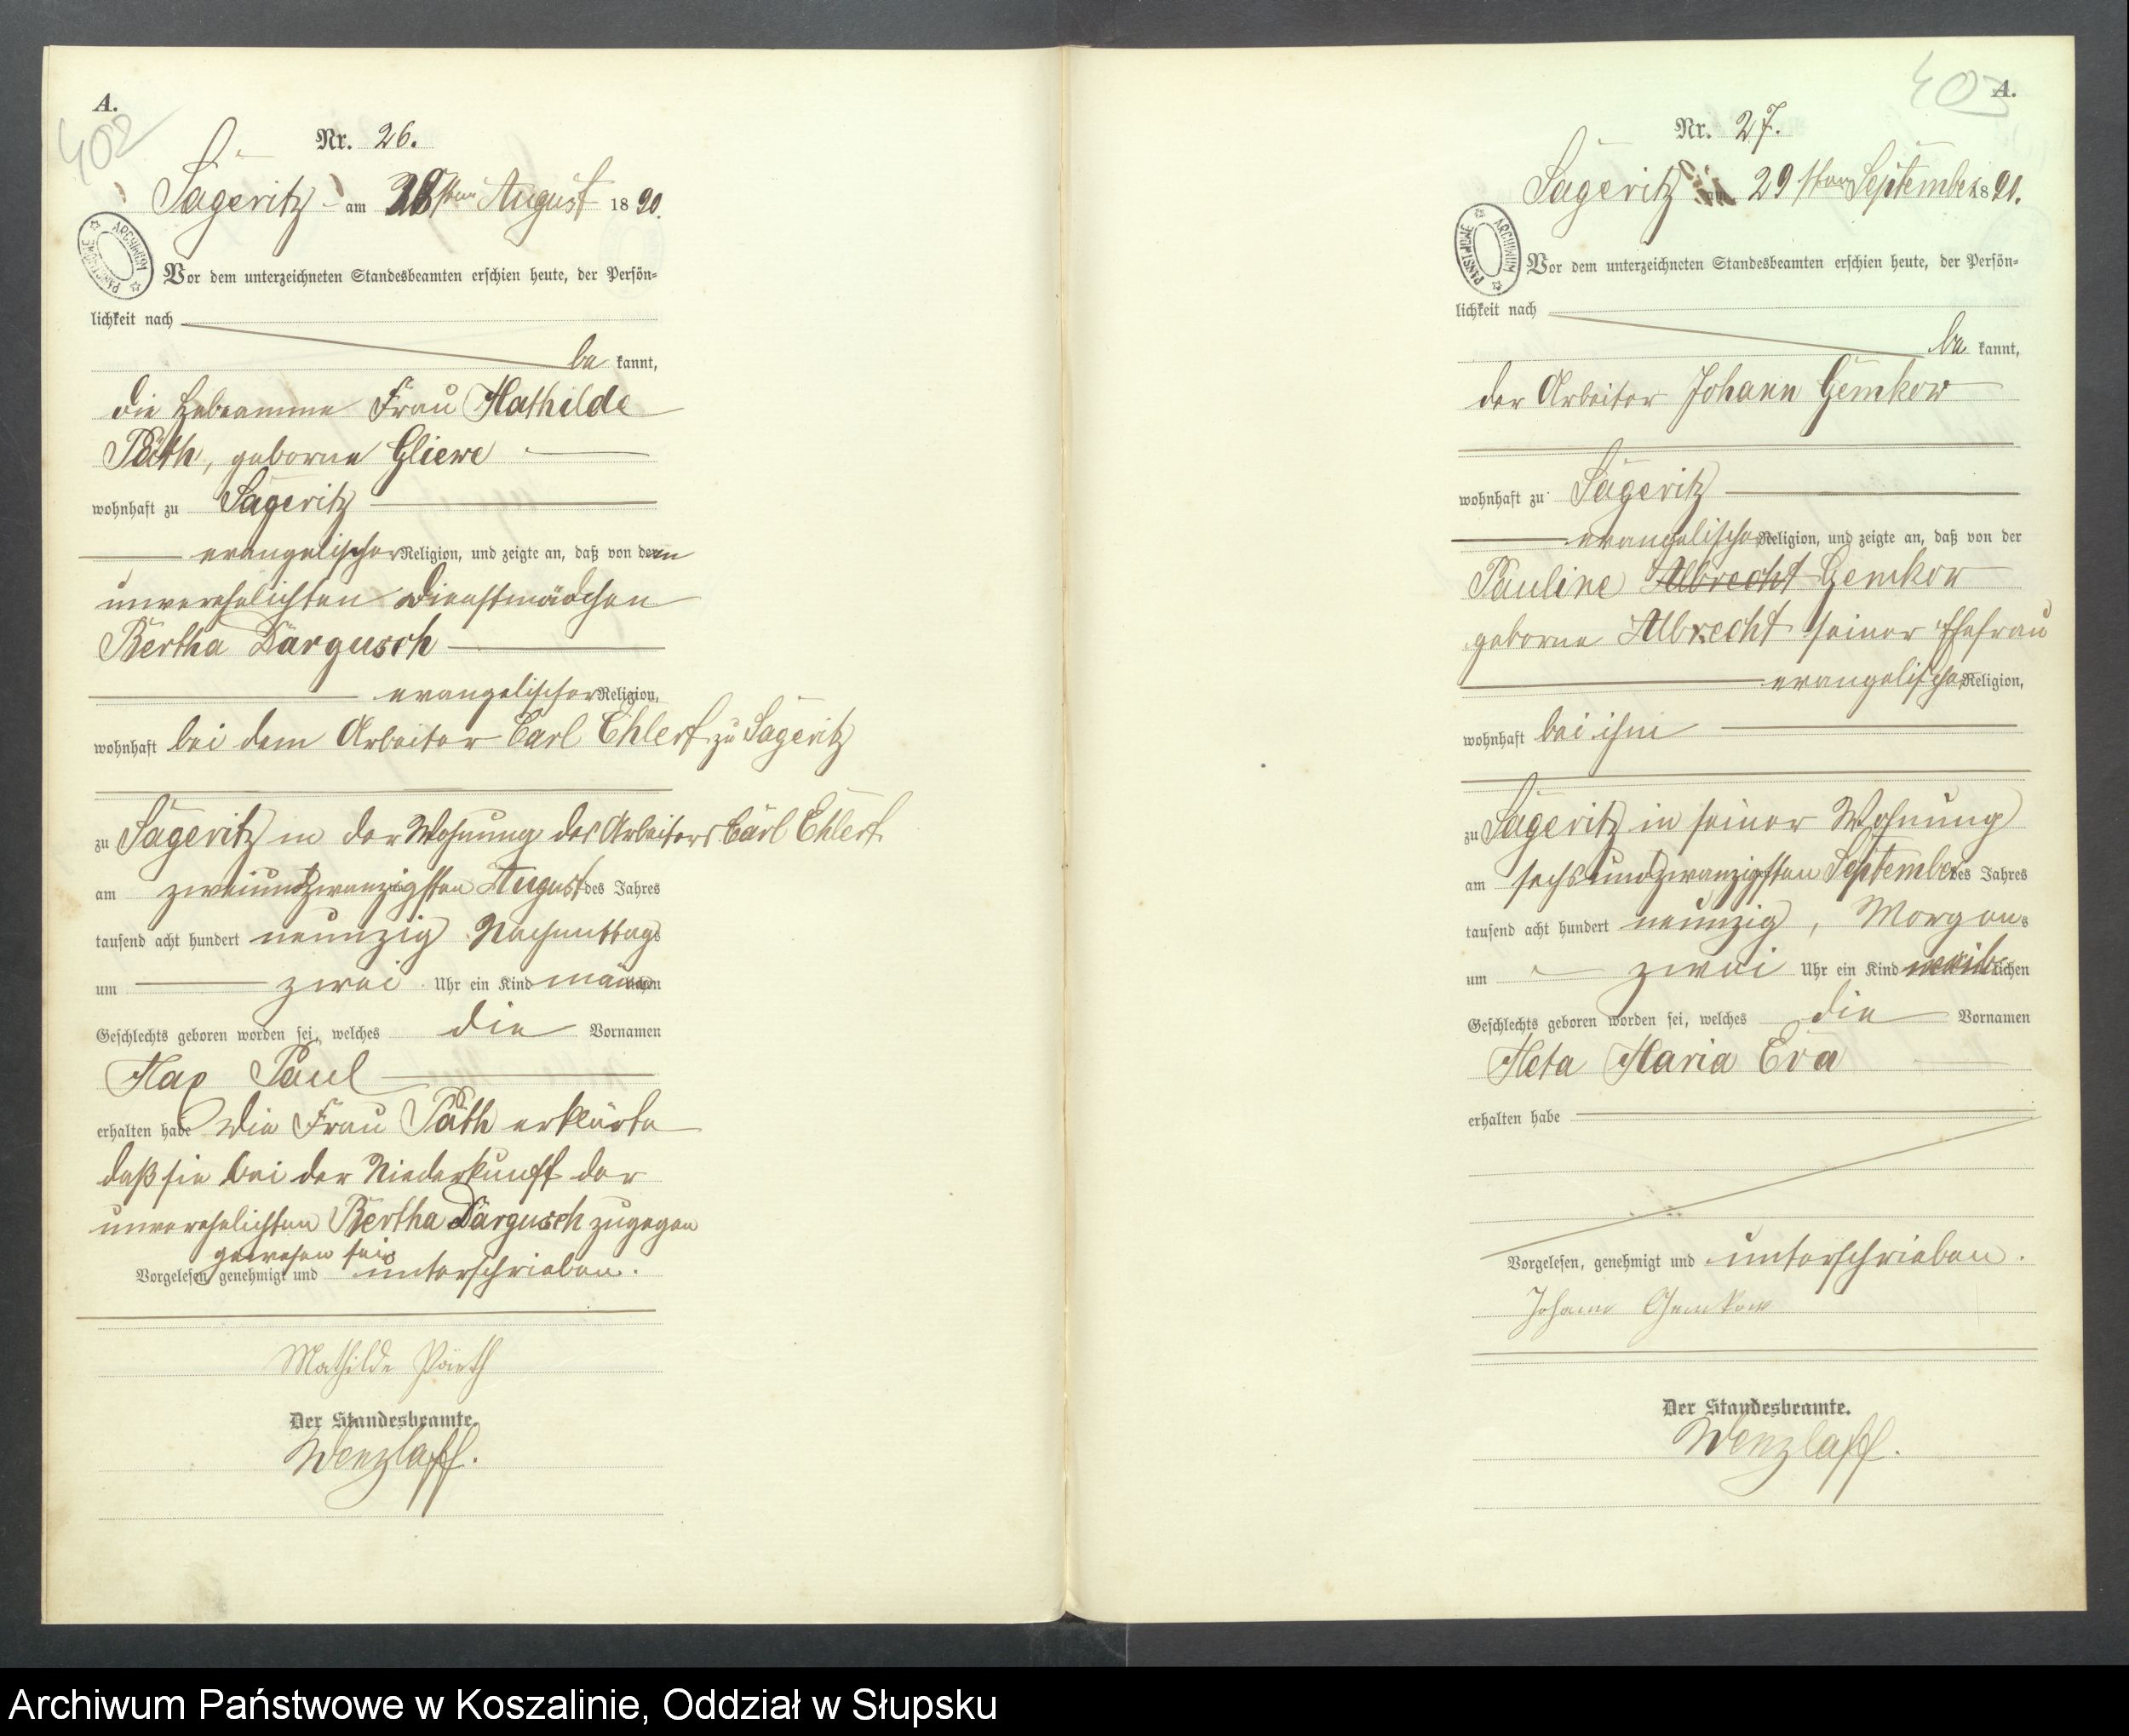 A.
402
Nr. 26.
Sageritz am 28sten August 1890.
ARCHIWUM PAŃSTWOWE
Vor dem unterzeichneten Standesbeamten erschien heute, der Persön=
lichkeit nach
be kannt,
die Hebeamme Frau Mathilde
Päth, geborne Gliewe
wohnhaft zu Sageritz
evangelischer Religion, und zeigte an, daß von der
unverehelichten Dienstmädchen
Bertha Dargusch
evangelischer Religion,
wohnhaft bei dem Arbeiter Carl Ehlert zu Sageritz
zu Sageritz in der Wohnung des Arbeiters Carl Ehlert
am zweiundzwanzigsten August des Jahres
tausend acht hundert neunzig Nachmittags
um zwei Uhr ein Kind männlichen
Geschlechts geboren worden sei, welches die Vornamen
Max Paul
erhalten habe Die Frau Päth erklärte
daß sie bei der Niederkunft der
unverehelichten Bertha Dargusch zugegen
gewesen sei.
Vorgelesen, genehmigt und unterschrieben.
Mathilde Päeth
Der Standesbeamte.
Wenzlaff.
403
A.
Nr. 27.
Sageritz am 29sten September 1890.
ARCHIWUM PAŃSTWOWE
Vor dem unterzeichneten Standesbeamten erschien heute, der Persön=
lichkeit nach
be kannt,
der Arbeiter Johann Gemkow
wohnhaft zu Sageritz
evangelischer Religion, und zeigte an, daß von der
Pauline Albrecht Gemkow
geborne Albrecht seiner Ehefrau
evangelischer Religion,
wohnhaft bei ihm
zu Sageritz in seiner Wohnung
am sechsundzwanzigsten September des Jahres
tausend acht hundert neunzig, Morgens
um zwei Uhr ein Kind weiblichen
Geschlechts geboren worden sei, welches die Vornamen
Meta Maria Eva
erhalten habe
Vorgelesen, genehmigt und unterschrieben.
Johann Gemkow
Der Standesbeamte.
Wenzlaff.
Archiwum Państwowe w Koszalinie, Oddział w Słupsku